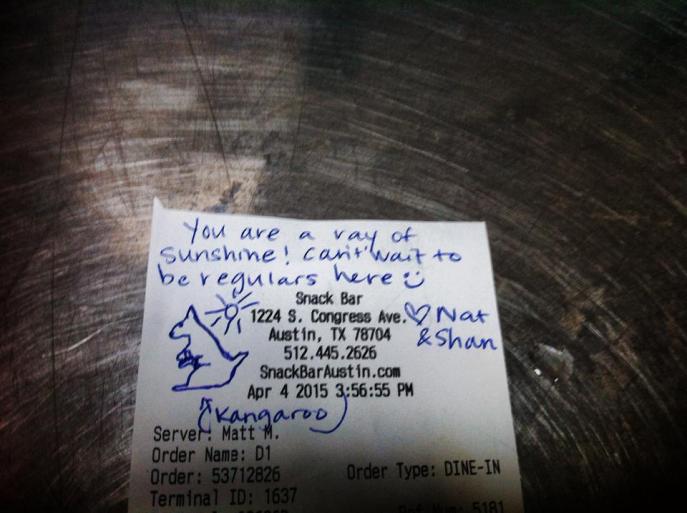 You are a ray of
sunshine! can't wait to
be regulars here
Snack Bar
1224 S. Congress Ave. ♡ Nat
Austin, TX 78704 & Shan
512.445.2626
SnackBarAustin.com
Apr 4 2015 3:56:55 PM
(Kangaroo)
Server: Matt M.
Order Name: D1
Order: 53712826 Order Type: DINE-IN
Terminal ID: 1637
5181